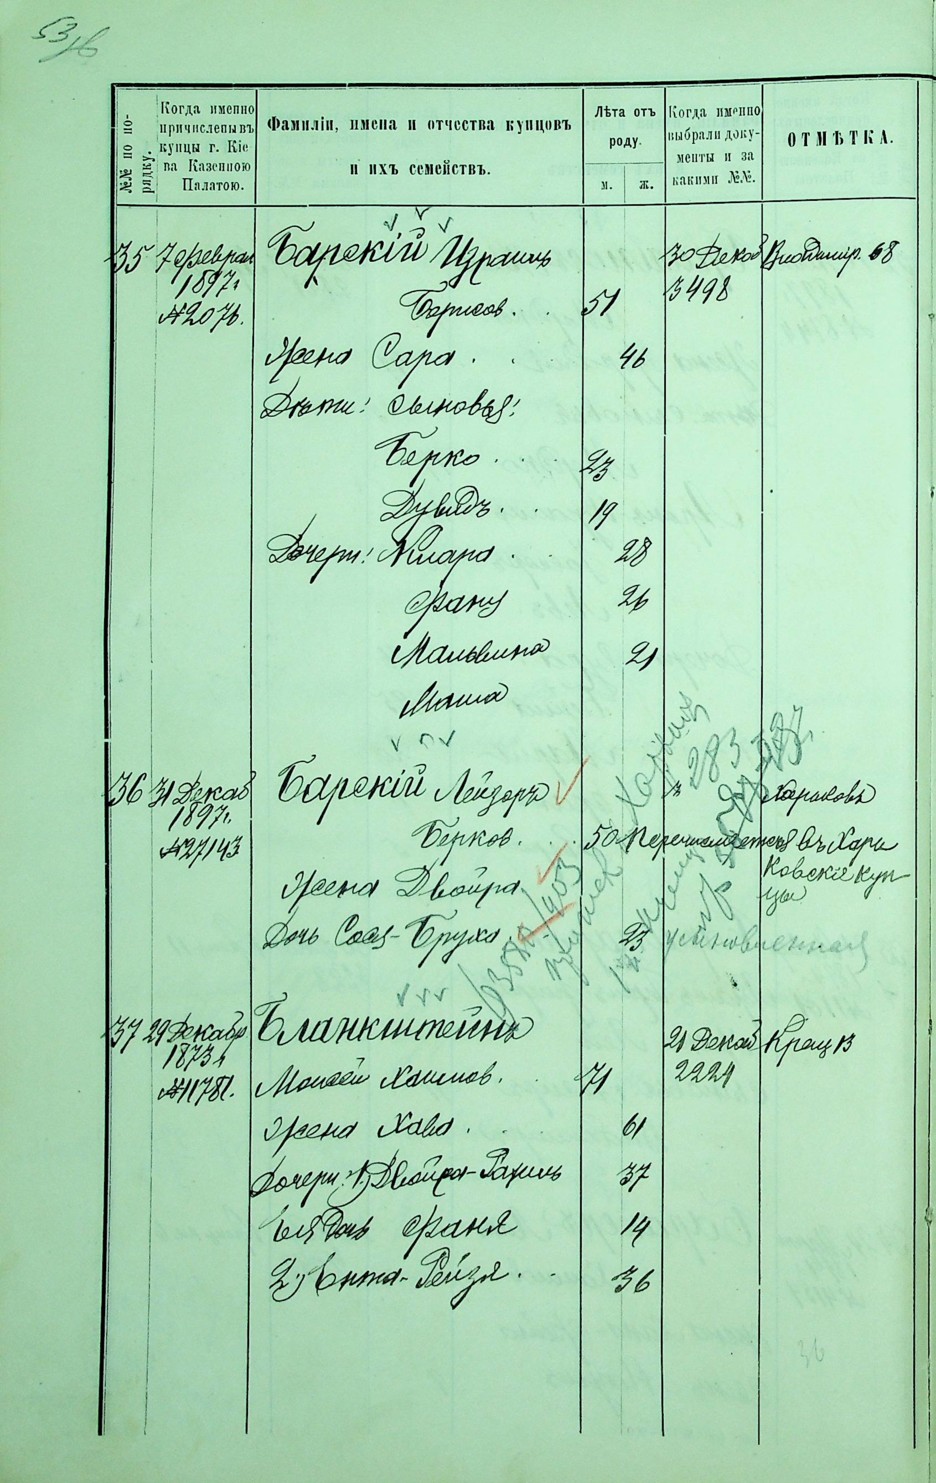 №№ по по-
рядку.
Когда именно
причислены въ
купцы г. Кіе
ва Казенною
Палатою.
Фамиліи, имена и отчества купцовъ
и ихъ семействъ.
Лѣта отъ
роду.
м. ж.
Когда именно
выбрали доку-
менты и за
какими №№.
ОТМѢТКА.
35 7 Феврал Барскій Израиль 30 Декаб Владимір. 68
1897г. 3498
№2076. Борисов. 51
Жена Сара 46
Дѣти: сыновья:
Берко 23
Дувидъ 19
Дочери: Клара 28
Фаня 26
Мальвина 21
Маша
283
36 31 Декаб Барскій Лейзоръ Харьковъ
1897г.
№27143 Берков. 50 Перечисляется въ Харь
ковскіе куп-
цы
Жена Двойра
Дочь Сося-Бруха 23 усыновленная
1903
37 29 Декабр Бланкштейнъ 21 Декаб Крещ 13
1873г. 2224
№11781. Моисей Хаимов. 71
Жена Хава 61
Дочери: 1) Двойра-Рахиль 37
Ея дочь Фаня 14
2) Ента-Рейзя 36
36